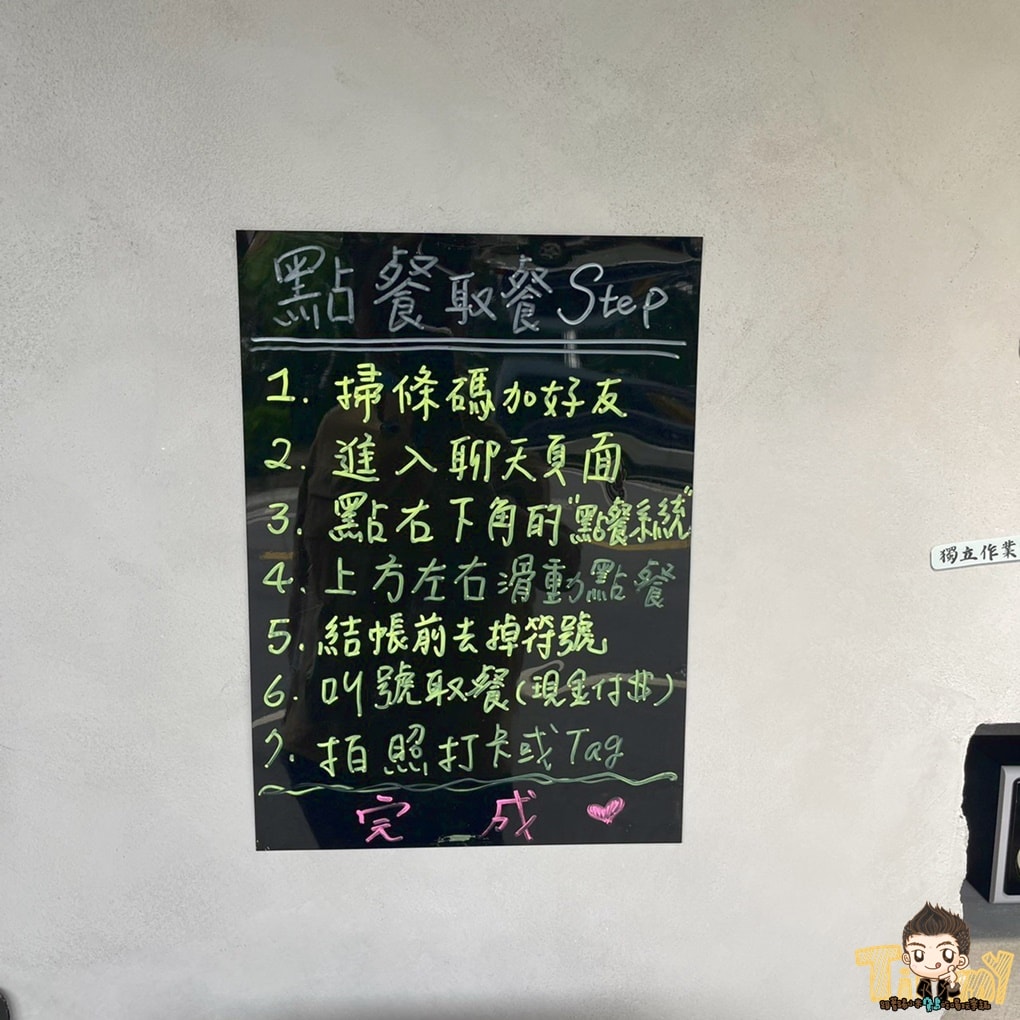 點餐取餐Step
1. 掃條碼加好友
2. 進入聊天頁面
3. 點右下角的"點餐系統"
4. 上方左右滑動點餐
5. 結帳前去掉符號
6. 叫號取餐(現金付$)
7. 拍照打卡或Tag
完成
獨立作業